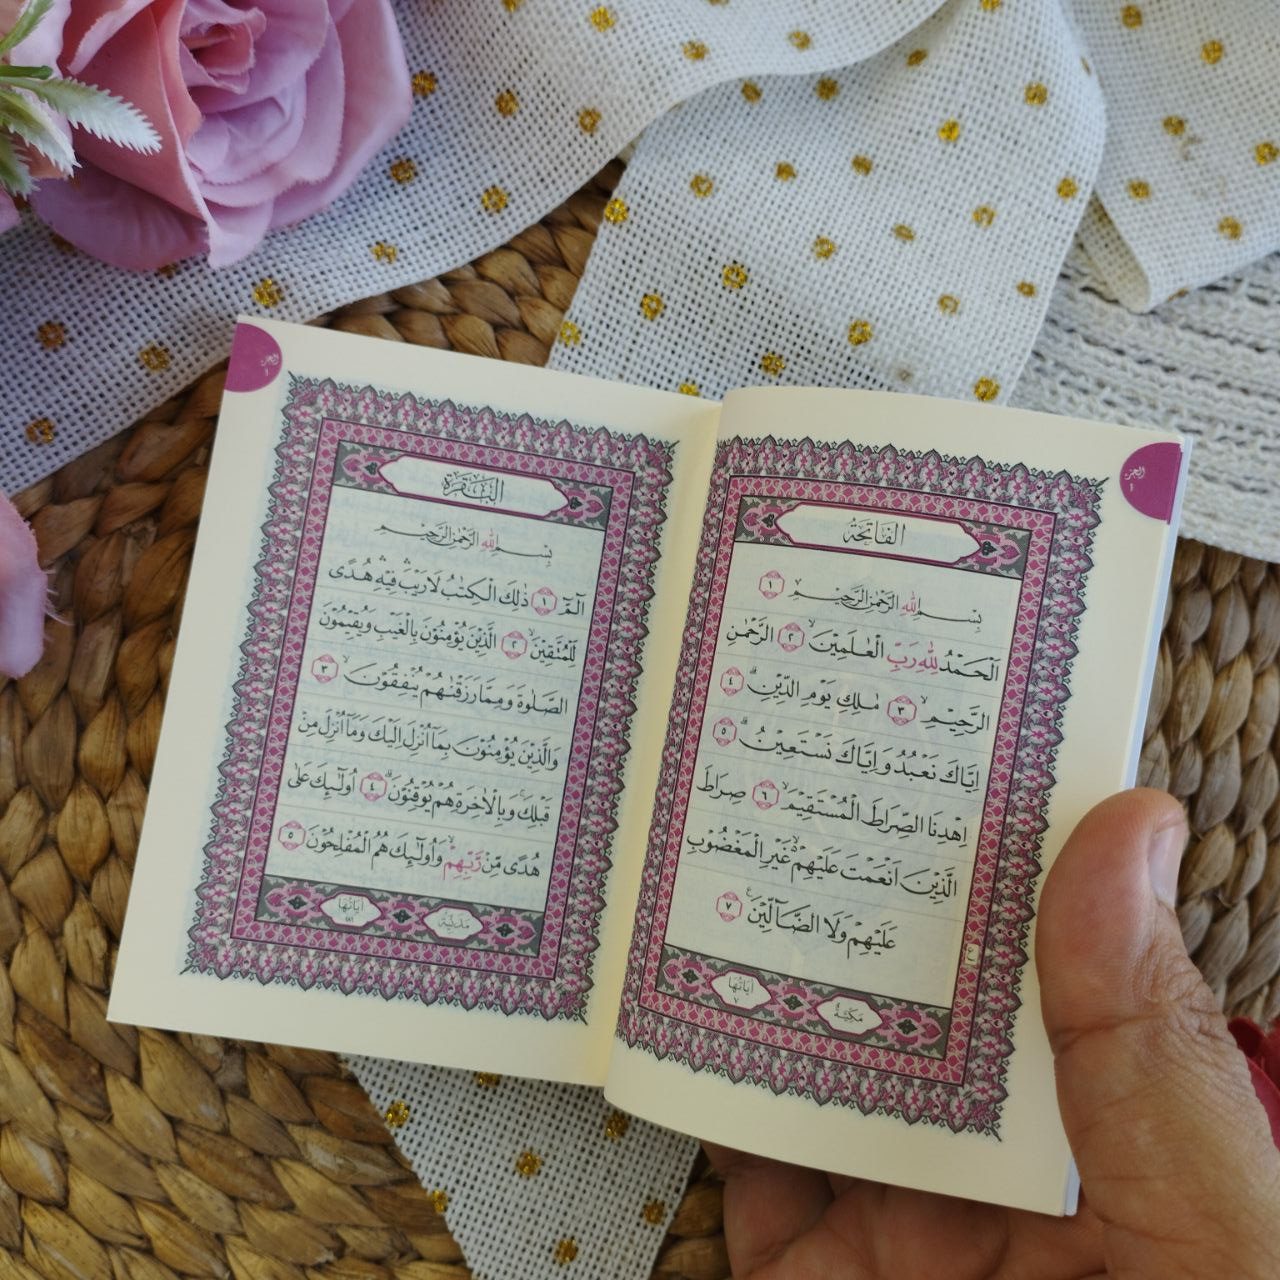 الجزء
١
الفاتحة
بِسْمِ اللهِ الرَّحْمٰنِ الرَّحِيمِ ١
اَلْحَمْدُ لِلّٰهِ رَبِّ الْعٰلَمِينَۙ ٢ اَلرَّحْمٰنِ
الرَّحِيمِۙ ٣ مٰلِكِ يَوْمِ الدِّينِۜ ٤
اِيَّاكَ نَعْبُدُ وَاِيَّاكَ نَسْتَعِينُۜ ٥
اِهْدِنَا الصِّرَاطَ الْمُسْتَقِيمَۙ ٦ صِرَاطَ
الَّذِينَ اَنْعَمْتَ عَلَيْهِمْۙ غَيْرِ الْمَغْضُوبِ
عَلَيْهِمْ وَلَا الضَّٓالِّينَ ٧
ع
مَكِّيَّةٌ
اٰيَاتُهَا
٧
الجزء
١
البقرة
بِسْمِ اللهِ الرَّحْمٰنِ الرَّحِيمِ
الٓمٓ ١ ذٰلِكَ الْكِتٰبُ لَا رَيْبَۛ فِيهِۛ هُدًى
لِلْمُتَّقِينَۙ ٢ اَلَّذِينَ يُؤْمِنُونَ بِالْغَيْبِ وَيُقِيمُونَ
الصَّلٰوةَ وَمِمَّا رَزَقْنٰهُمْ يُنْفِقُونَۙ ٣
وَالَّذِينَ يُؤْمِنُونَ بِمَٓا اُنْزِلَ اِلَيْكَ وَمَٓا اُنْزِلَ مِنْ
قَبْلِكَۚ وَبِالْاٰخِرَةِ هُمْ يُوقِنُونَۜ ٤ اُولٰٓئِكَ عَلٰى
هُدًى مِنْ رَبِّهِمْۙ وَاُولٰٓئِكَ هُمُ الْمُفْلِحُونَ ٥
مَدَنِيَّةٌ
اٰيَاتُهَا
٢٨٦